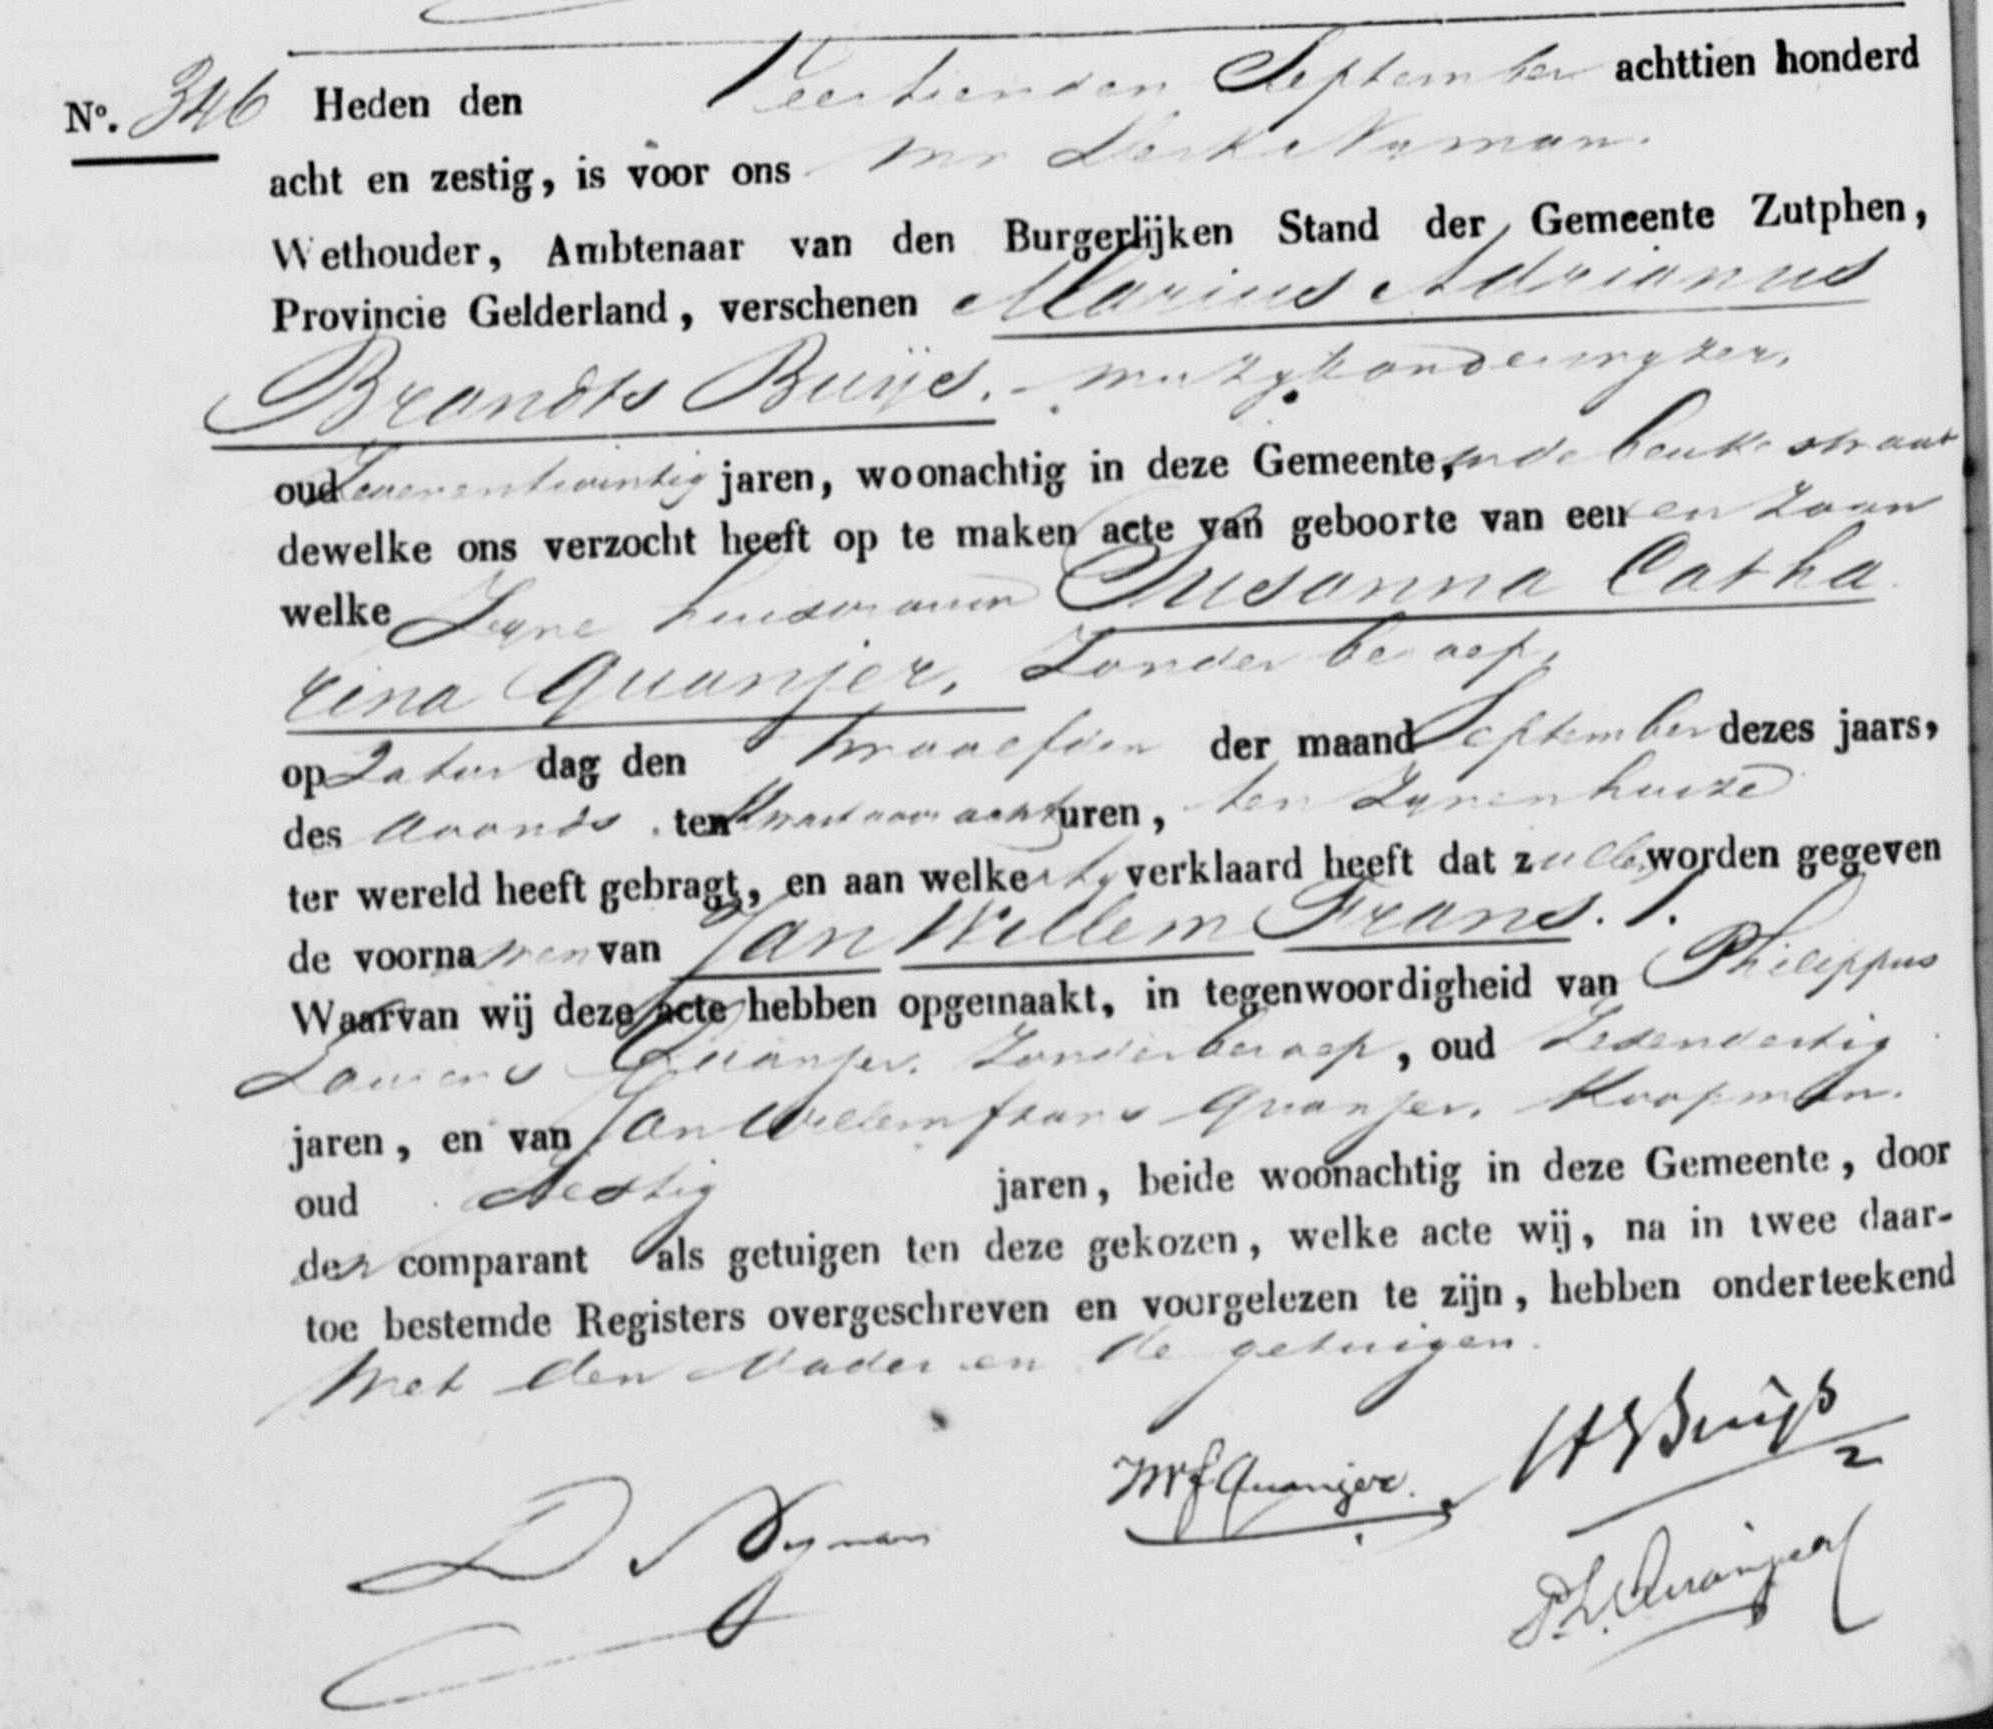 No. 346 Heden den Veertienden September achttien honderd
acht en zestig, is voor ons Mr Derk Nyman.
Wethouder, Ambtenaar van den Burgerlijken Stand der Gemeente Zutphen,
Provincie Gelderland, verschenen Marius Adrianus
Brandts Buijs. muzykonderwyzer,
oud Zevenentwintig jaren, woonachtig in deze Gemeente, in de beukerstraat
dewelke ons verzocht heeft op te maken acte van geboorte van een en Zoon
welke Zyne huisvrouw Susanna Catha
rina Quanjer, Zonder beroep,
op Zatur dag den twaalfden der maand September dezes jaars,
des avonds ten Kwart voor acht uren, ten Zynen huize
ter wereld heeft gebragt, en aan welke hy verklaard heeft dat zullen worden gegeven
de voorna men van Jan Willem Frans.
Waarvan wij deze acte hebben opgemaakt, in tegenwoordigheid van Philippus
Laurens Quanjer, Zonder beroep, oud Zesendertig
jaren, en van Jan Willem frans Quanjer, Koopman.
oud Sestig jaren, beide woonachtig in deze Gemeente, door
den comparant als getuigen ten deze gekozen, welke acte wij, na in twee daar-
toe bestemde Registers overgeschreven en voorgelezen te zijn, hebben onderteekend
Met den Vader en de getuigen.
Buijs
JWF Quanjer.
D Nyman
P. L. Quanjer